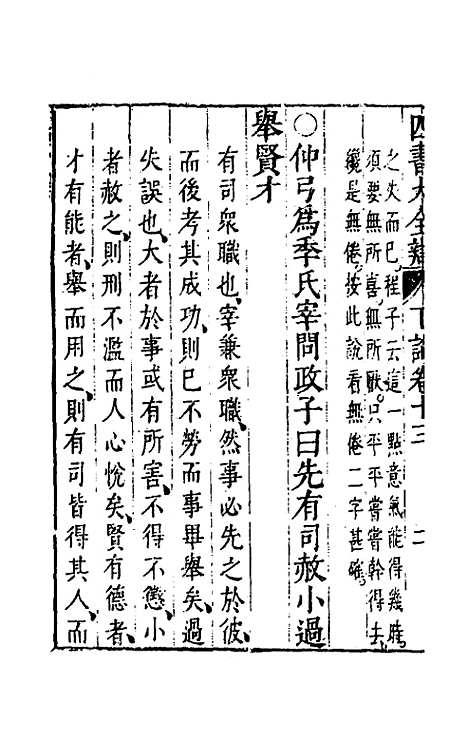 四書大全辯 下論卷十三 二
之失而已程子云這一點意氣能得幾時
須要無所喜無所厭只平平嘗嘗幹得去
纔是無倦按此說看無倦二字甚確
○仲弓爲季氏宰問政子曰先有司赦小過
舉賢才
有司衆職也宰兼衆職然事必先之於彼
而後考其成功則已不勞而事畢舉矣過
失誤也大者於事或有所害不得不懲小
者赦之則刑不濫而人心悅矣賢有德者
才有能者舉而用之則有司皆得其人而